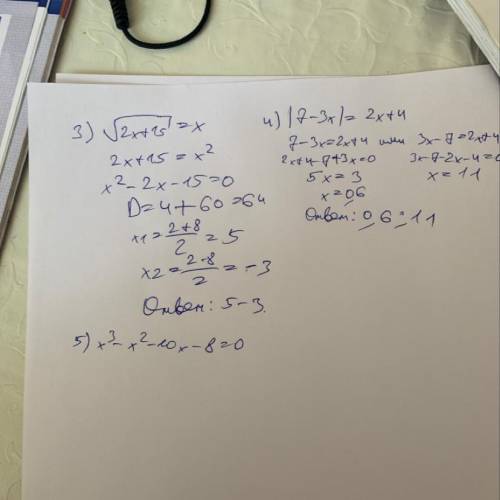 3) √2x+15 = x
2x+15 = x²
x² - 2x - 15 = 0
D = 4 + 60 = 64
x1 = 2+8/2 = 5
x2 = 2-8/2 = -3
Ответ: 5 -3.
4) |7-3x| = 2x+4
7-3x=2x+4 или 3x-7=2x+4
2x+4-7+3x=0 3x-7-2x-4=0
5x = 3 x = 11
x = 0,6
Ответ: 0,6; 11
5) x³ - x² - 10x - 8 = 0